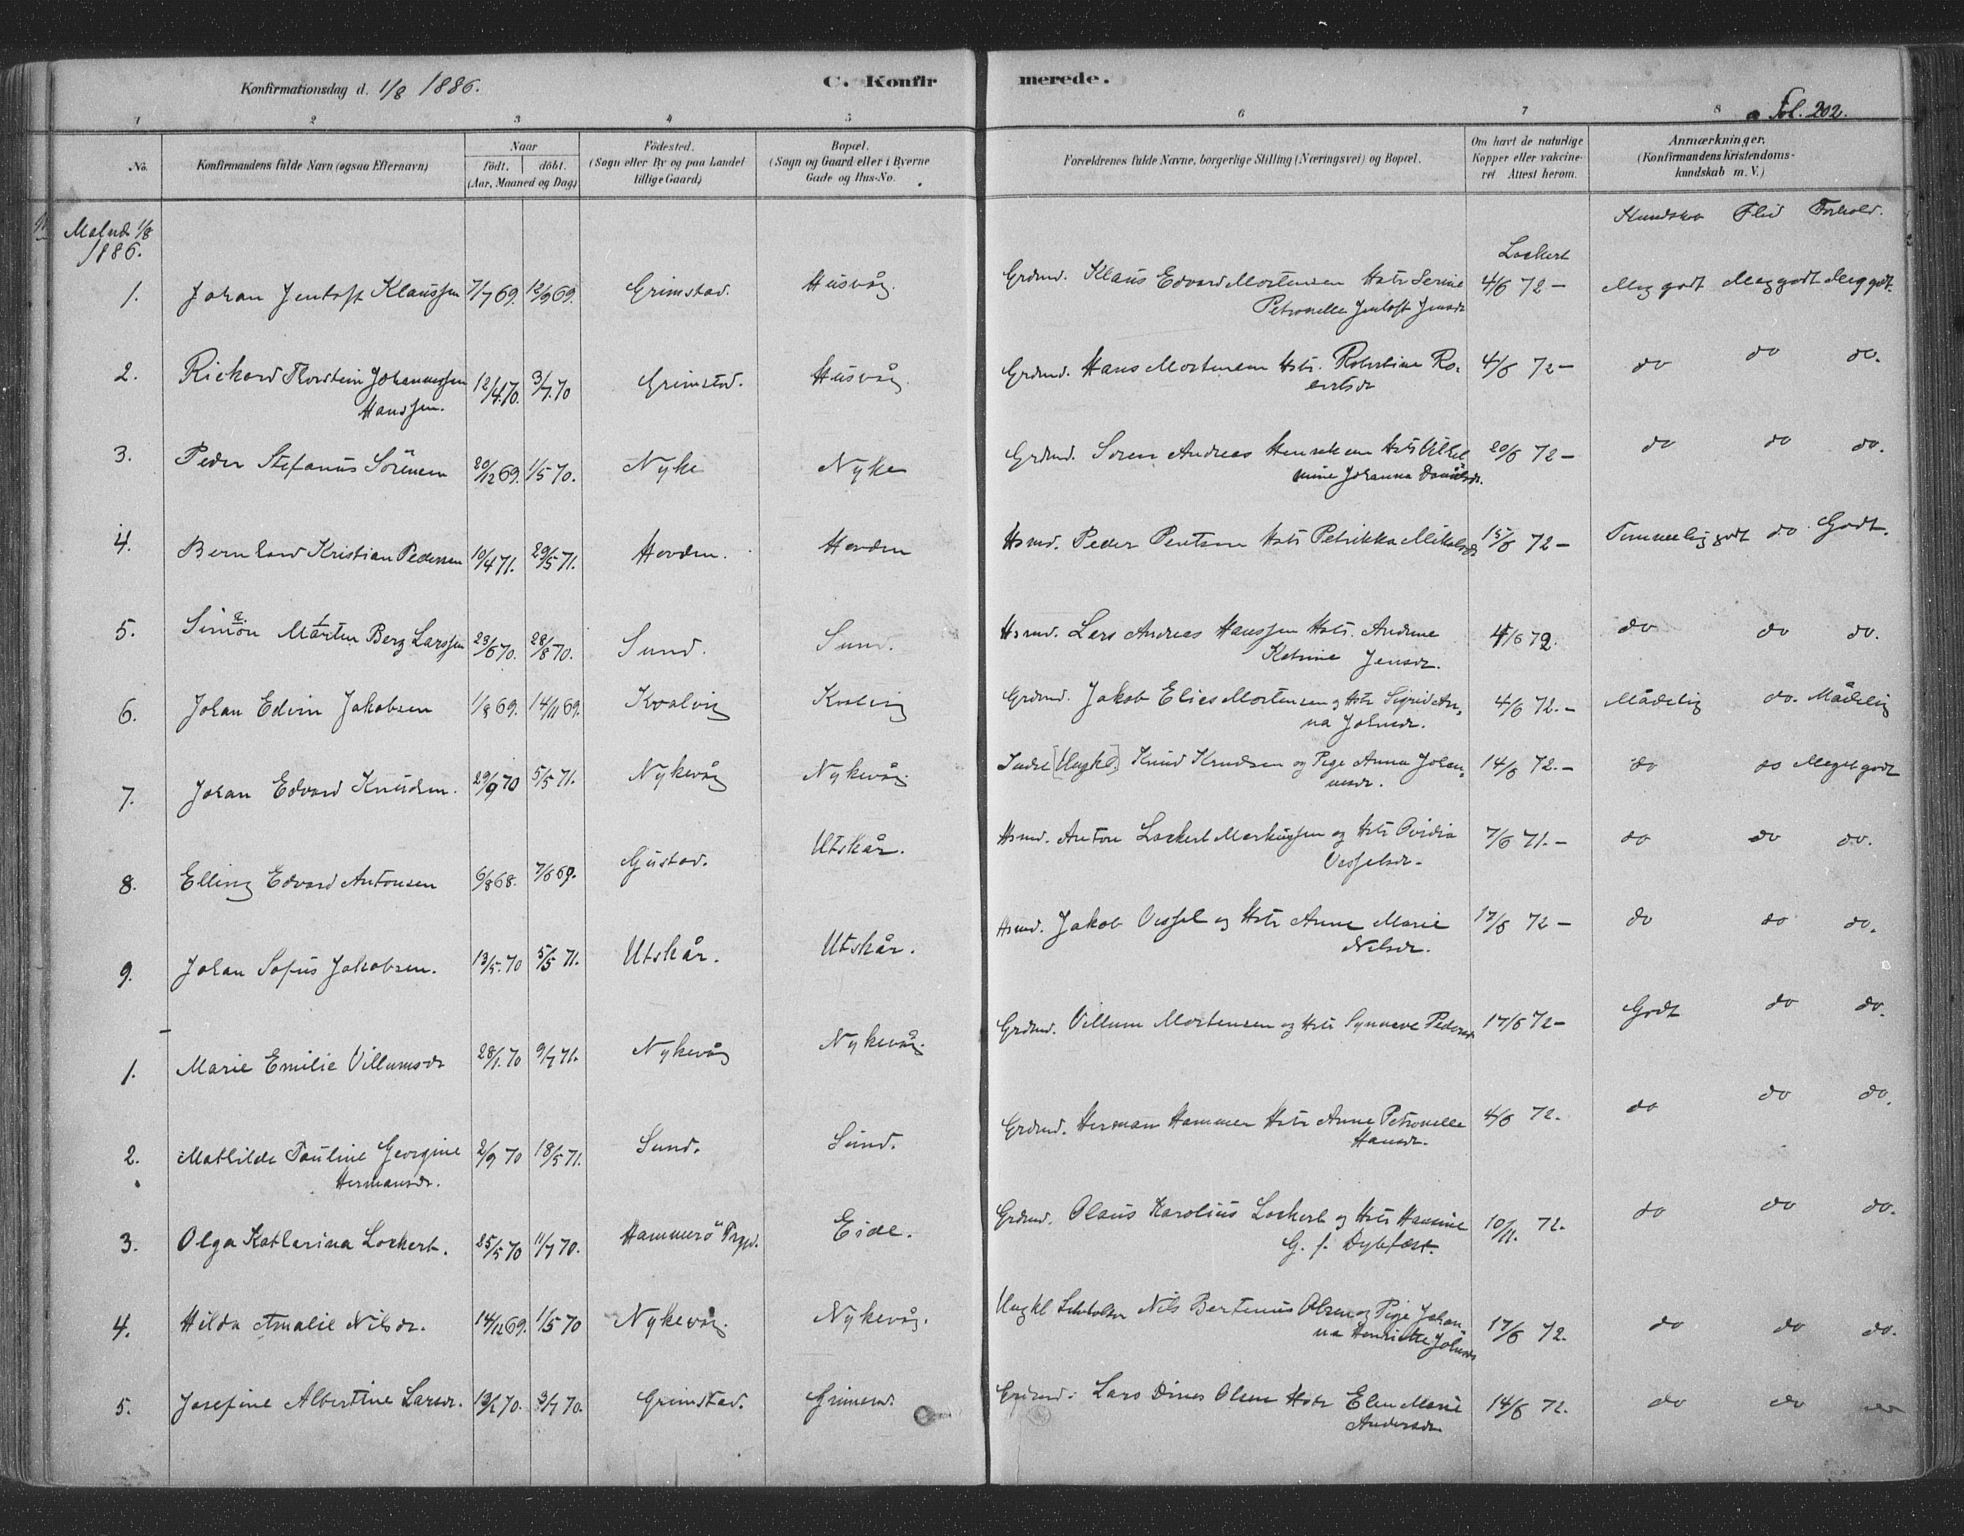 Konfirmationsdag d. 1/8 1886. C. Konfirmerede. Fol. 202.
1 2 3 4 5 6 7 8
No. Konfirmandens fulde Navn (ogsaa Efternavn) Naar født. døbt. (Aar, Maaned og Dag) Födested. (Sogn eller By og paa Landet tillige Gaard) Bopæl. (Sogn og Gaard eller i Byerne Gade og Hus-No. Forældrenes fulde Navne, borgerlige Stilling (Næringsvei) og Bopæl. Om havt de naturlige Kopper eller vakcineret Attest herom. Anmærkninger. (Konfirmandens Kristendomskundskab m. V.)
Malnæs 1/8 1886. Lockert Kundskab Flid Forhold.
1. Johan Jentoft Klaussen 7/7 69. 12/9 69. Grimstad. Husvåg. Grdmd. Klaus Edvard Mortensen Hstr Serine
Petronelle Jentoft Jensdr 4/6 72- Meg godt Meg godt Meg godt.
2. Rickard Thorstein Johannessen
Hanssen. 12/4 70. 3/7 70 Grimstad. Husvåg. Grdmd. Hans Mortensen Hstr. Robertine Ro-
bertsdr 4/6 72- do do do.
3. Peder Stefanus Sörensen 20/12 69. 1/5 70. Nyke Nyke Grdmd. Sören Andreas Henriksen Hstr Vilhel
mine Johanna Danielsdr. 20/6 72- do do do.
4. Bernhard Kristian Pedersen 10/4 71. 29/5 71. Hovden. Hovden Hsmd. Peder Pentsen Hstr Petrikka Mikalsdr 15/6 72- Temmelig godt do Godt.
5. Simon Mårten Berg Larssen 23/6 70. 28/8 70. Sund. Sund. Hsmd. Lars Andreas Hanssen Hstr. Andrine
Katrine Jensdr. 4/6 72. do do do.
6. Johan Edvin Jakobsen 1/8 69. 14/11 69. Kvalvig Kvalvig Grdmd. Jakob Elies Mortensen og Hstr Sigrid An-
na Johnsdr. 4/6 72.- Mådelig do. Mådelig
7. Johan Edvard Knudsen. 29/9 70 5/5 71. Nykevåg Nykevåg. Inds [Ungkl.] Knud Knudsen og Pige Anna Johan-
nesdr. 14/6 72.- do do Meget godt
8. Elling Edvard Antonsen 6/8 68. 7/6 69. Gustad. Utskår. Hsmd. Anton Lockert Markussen og Hstr Ovidia
Vesselsdr. 7/6 71.- do do do.
9. Johan Sofus Jakobsen. 13/5. 70 5/5 71. Utskår. Utskår. Hsmd. Jakob Vessel og Hstr Anne Marie
Nilsdr. 17/6 72- do do do.
1. Marie Emilie Villumsdr 28/1. 70 9/7 71. Nykevåg Nykevåg. Grdmd. Villum Mortensen og Hstr Synneve Pedersdr 17/6 72- Godt do do.
2. Mathilde Pauline Georgine
Hermansdr. 2/9 70 18/5 71. Sund. Sund. Grdmd. Herman Hammer Hstr Anne Petronelle
Hansdr. 4/6 72. do do do.
3. Olga Katharina Lockert. 25/5 70 11/7 70. Hammerö Prgd. Eide. Grdmd. Olaus Karolius Lockert og Hstr Hansine
G. f. Dybfæst. 10/11. 72. do do do.
4. Hilda Amalie Nilsdr. 14/12 69. 1/5 70 Nykevåg. Nykevåg. Ungkl Nils Bertenius Olsen og Pige Johan
na Henriette Johnsdr 17/6 72. do do do.
5. Josefine Albertine Larsdr. 3/7 70. Grimstad. Grdmd. Lars Dines Olsen Hstr Elen Marie
Andersdr 14/6 72. do do do